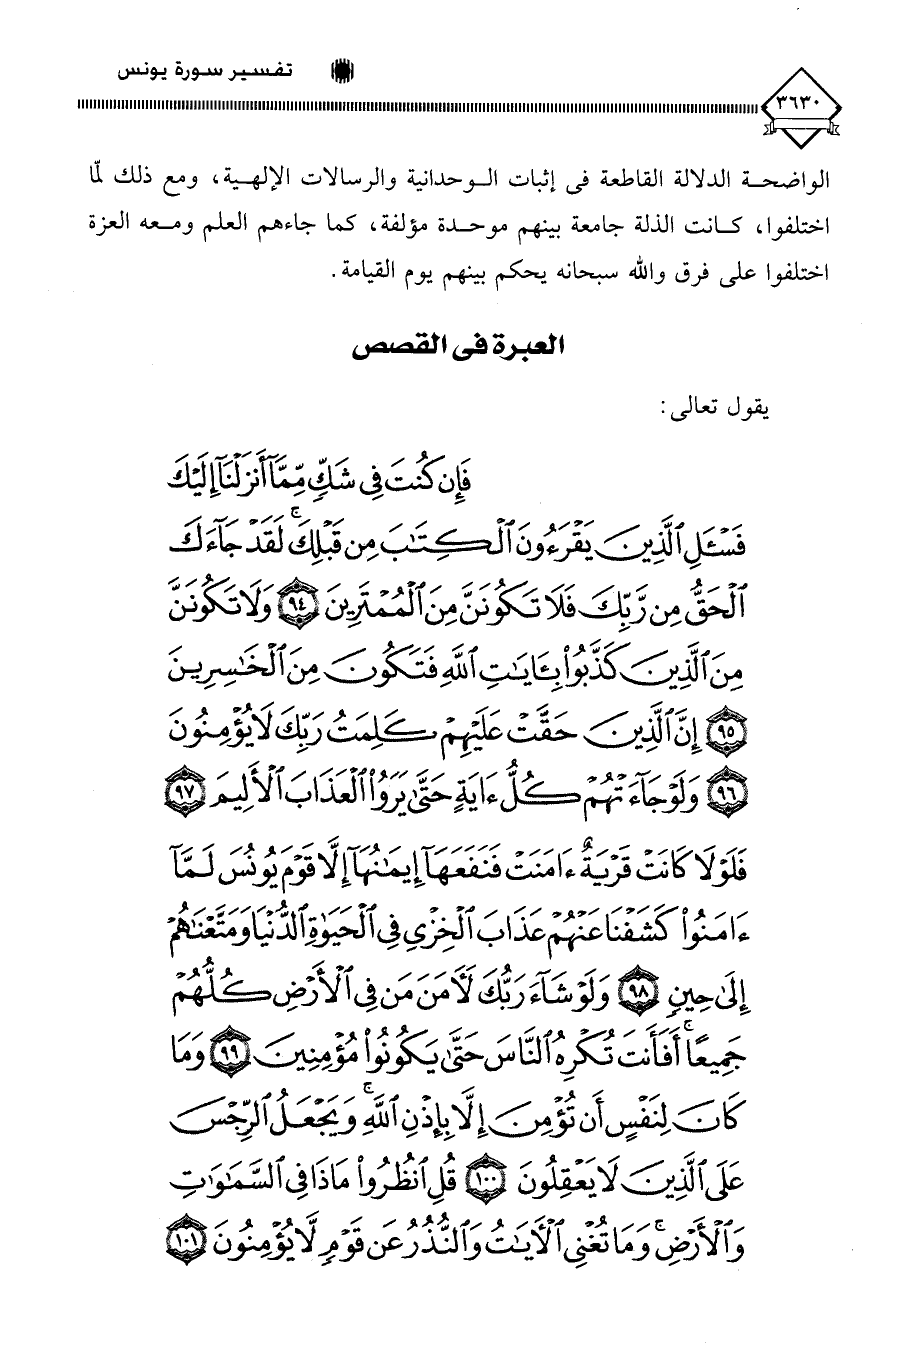 تفسير سورة يونس
٣٦٣٠
الواضحة الدلالة القاطعة فى إثبات الوحدانية والرسالات الإلهية، ومع ذلك لمّا
اختلفوا، كانت الذلة جامعة بينهم موحدة مؤلفة، كما جاءهم العلم ومعه العزة
اختلفوا على فرق والله سبحانه يحكم بينهم يوم القيامة.
العبرة فى القصص
يقول تعالى:
فَإِن كُنتَ فِى شَكٍّ مِّمَّآ أَنزَلْنَآ إِلَيْكَ
فَسْـَٔلِ ٱلَّذِينَ يَقْرَءُونَ ٱلْكِتَـٰبَ مِن قَبْلِكَ ۚ لَقَدْ جَآءَكَ
ٱلْحَقُّ مِن رَّبِّكَ فَلَا تَكُونَنَّ مِنَ ٱلْمُمْتَرِينَ ٩٤ وَلَا تَكُونَنَّ
مِنَ ٱلَّذِينَ كَذَّبُوا۟ بِـَٔايَـٰتِ ٱللَّهِ فَتَكُونَ مِنَ ٱلْخَـٰسِرِينَ
٩٥ إِنَّ ٱلَّذِينَ حَقَّتْ عَلَيْهِمْ كَلِمَتُ رَبِّكَ لَا يُؤْمِنُونَ
٩٦ وَلَوْ جَآءَتْهُمْ كُلُّ ءَايَةٍ حَتَّىٰ يَرَوُا۟ ٱلْعَذَابَ ٱلْأَلِيمَ ٩٧
فَلَوْلَا كَانَتْ قَرْيَةٌ ءَامَنَتْ فَنَفَعَهَآ إِيمَـٰنُهَآ إِلَّا قَوْمَ يُونُسَ لَمَّآ
ءَامَنُوا۟ كَشَفْنَا عَنْهُمْ عَذَابَ ٱلْخِزْىِ فِى ٱلْحَيَوٰةِ ٱلدُّنْيَا وَمَتَّعْنَـٰهُمْ
إِلَىٰ حِينٍ ٩٨ وَلَوْ شَآءَ رَبُّكَ لَـَٔامَنَ مَن فِى ٱلْأَرْضِ كُلُّهُمْ
جَمِيعًا ۚ أَفَأَنتَ تُكْرِهُ ٱلنَّاسَ حَتَّىٰ يَكُونُوا۟ مُؤْمِنِينَ ٩٩ وَمَا
كَانَ لِنَفْسٍ أَن تُؤْمِنَ إِلَّا بِإِذْنِ ٱللَّهِ ۚ وَيَجْعَلُ ٱلرِّجْسَ
عَلَى ٱلَّذِينَ لَا يَعْقِلُونَ ١٠٠ قُلِ ٱنظُرُوا۟ مَاذَا فِى ٱلسَّمَـٰوَٰتِ
وَٱلْأَرْضِ ۚ وَمَا تُغْنِى ٱلْـَٔايَـٰتُ وَٱلنُّذُرُ عَن قَوْمٍ لَّا يُؤْمِنُونَ ١٠١